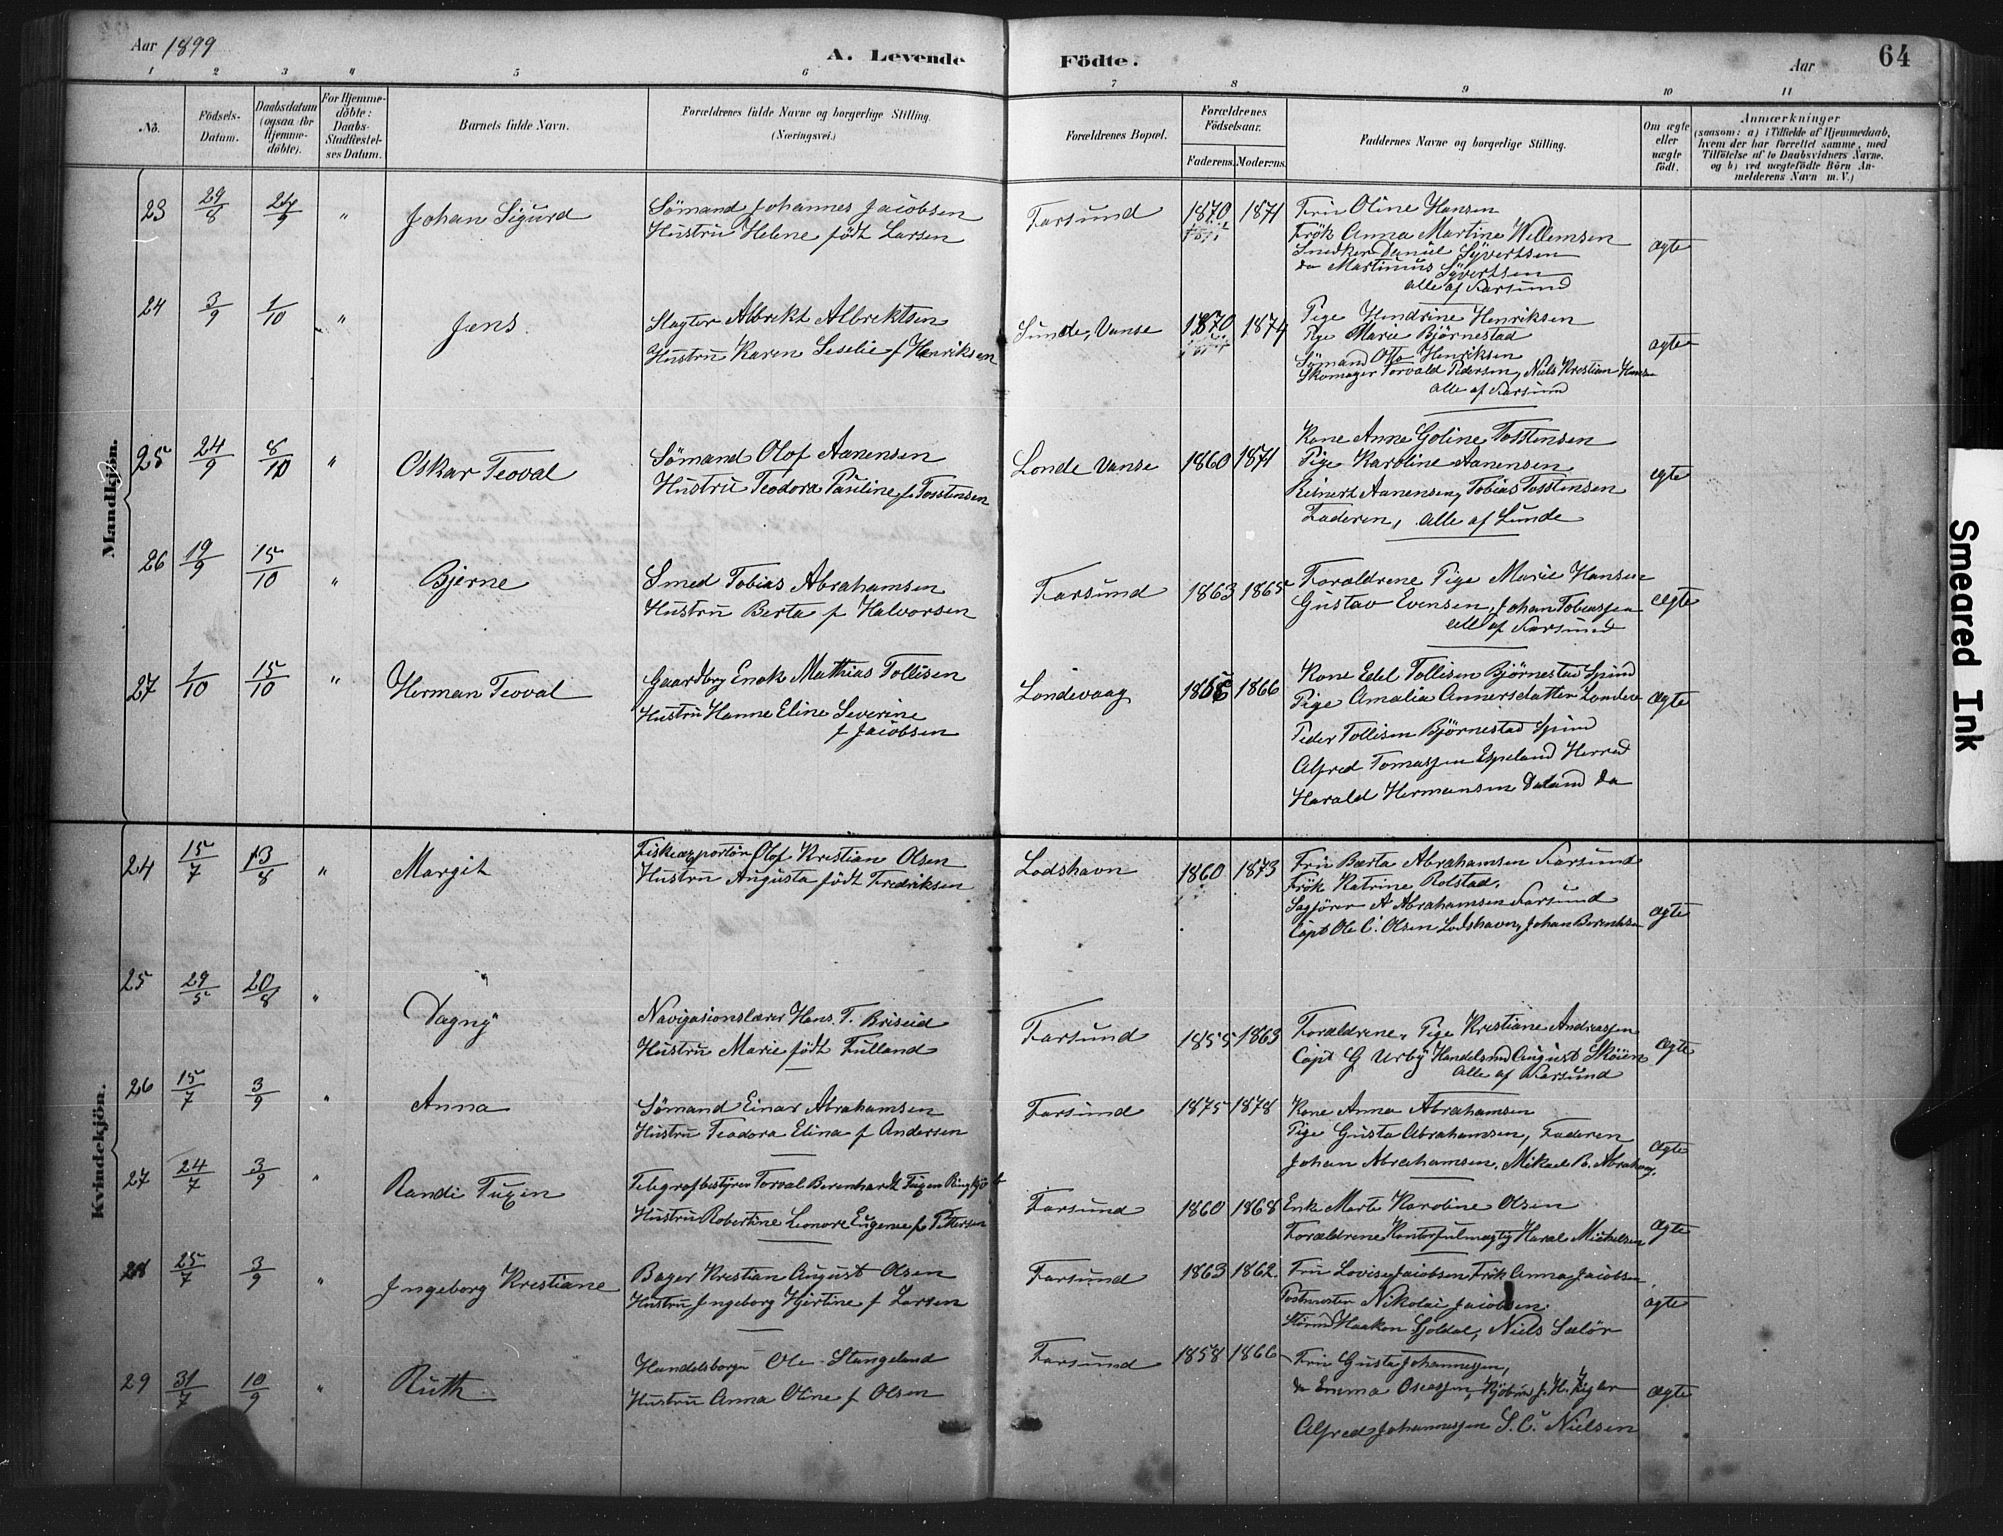 Aar 1899
A. Levende Födte.
Aar
64
1 2 3 4 5 6 7 8 9 10 11
No.
Födsels-Datum.
Daabsdatum (ogsaa for Hjemme-döbte).
For Hjemme-döbte: Daabs-Stadfæstel-ses Datum.
Barnets fulde Navn.
Forældrenes fulde Navne og borgerlige Stilling. (Næringsvei.)
Forældrenes Bopæl.
Forældrenes Födselsaar.
Faderens. Moderens.
Faddernes Navne og borgerlige Stilling.
Om ægte eller uægte födt.
Anmærkninger
(saasom: a) i Tilfælde af Hjemmedaab, hvem der har forrettet samme, med Tilföielse af to Daabsvidners Navne, og b) ved uægtefödte Börn An-melderens Navn m. V.)
Mandkjön.
23 29/8 24/9 " Johan Sigurd
Sömand Johannes Jacobsen
Hustru Helene födt Larsen
Farsund 1870 1871
Fru Oline Hansen
Frök Anna Martine Willemsen
Snedker Daniel Syvertsen
do Martinius Syvertsen
alle af Farsund
ægte
24 3/9 1/10 " Jens
Slagter Albrekt Albrektsen
Hustru Karen Seselie f Henriksen
Sunde, Vanse 1870 1874
Pige Hendrine Henriksen
Pige Marie Björnestad
Sömand Otto Henriksen
Skomager Torvald Pedersen, Niels Kristian Hansen
alle af Farsund
ægte
25 24/9 8/10 " Oskar Teoval
Sömand Olof Aanensen
Hustru Teodora Pauline f Tosstensen
Londe Vanse 1860 1871
Kone Anne Goline Tosstensen
Pige Karoline Aanensen
Reinert Aanensen, Tobias Tosstensen
Faderen, alle af Lunde
egte
26 19/9 15/10 " Bjerne
Smed Tobias Abrahamsen
Hustru Berta f Halvorsen
Farsund 1863 1865
Foraldrene Pige Marie Hansen
Gustav Evensen, Johan Tobiassen
alle af Farsund
ægte
27 1/10 15/10 " Herman Teoval
Gaardbrg Enok Mathias Tollisen
Hustru Hanne Eline Severine
f Jacobsen
Londevaag 1866
Kone Edel Tollisen Björnestad Spind
Pige Amalia Annersdatter Londev
Peder Tollisen Björnestad Spind
Alfred Tomassen Espeland Herred
Harald Hermansen Daland do
ægte
Kvindekjön.
24 15/7 13/8 " Margit
Fiskeexportör Olof Kristian Olsen
Hustru Augusta födt Fredriksen
Lodshavn 1860 1873
Fru Bærta Abrahamsen Farsund
Frök Katrine Rolstad,
Sagförer A Abrahamsen Farsund
Capt Ole C. Olsen Lodshavn, Johan Berentsen
ægte
25 29/5 20/8 " Dagny
Navigasionslærer Hans. T. Briseid
Hustru Marie födt Fulland
Farsund 1855 1863
Forældrene, Pige Kristiane Andreassen
Capt G Urby Handelsmd August Sköien
alle af Farsund
ægte
26 15/7 3/9 " Anna
Sömand Einar Abrahamsen
Hustru Teodora Elina f Andersen
Farsund 1875 1878
Kone Anna Abrahamsen
Pige Gusta Abrahamsen, Faderen
Johan Abrahamsen, Mikael B. Abrahams.
ægte
27 24/7 3/9 " Randi Tuxen
Telegrafbestyrer Torval Berenhardt Tuxen
Hustru Robertine Leonore Eugenie f Pettersen
Farsund 1860 1868
Enke Marte Karoline Olsen
Forældrene Kontorfulmægtig Haral Mickelsen
ægte
28 25/7 3/9 " Ingeborg Kristiane
Bager Kristian August Olsen
Hustru Ingeborg Hjertine f Larsen
Farsund 1863 1862.
Fru Lovise Jacobsen Frök Anna Jacobsen
Postmester Nikolai Jacobsen
Haakon Gjoldal, Niels Salör
ægte
29 31/7 10/9 " Ruth
Handelsborger Ole Stangeland
Hustru Anna Oline f Olsen
Farsund 1858 1866
Fru Gusta Johannessen,
do Emma Oscassen,
Alfred Johannessen S. C. Nielsen
ægte
Smeared Ink